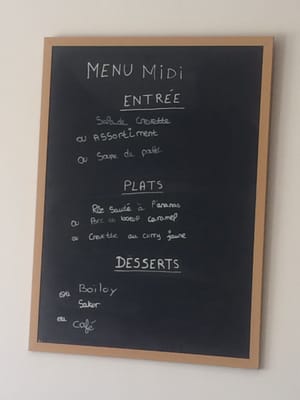 MENU MiDi
ENTRÉE
Salade Crevette
ou ASSORtiMENT
ou Soupe de
PLATS
Riz sauté à l'ananas
ou Porc ou boeuf caramel
ou Crevette au curry jaune
DESSERTS
Boiloy
Saker
ou café